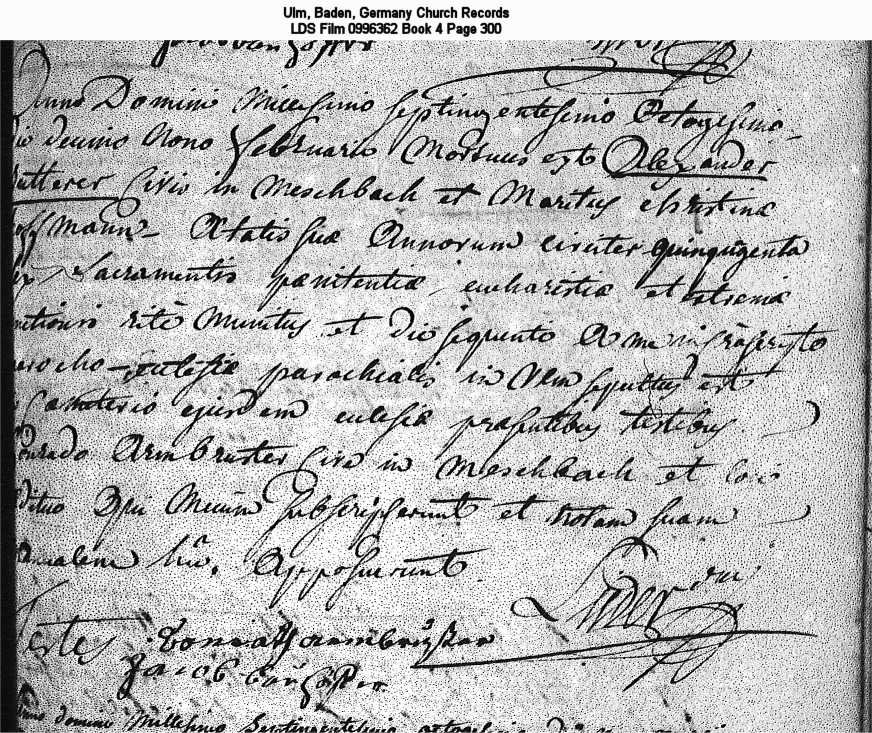 Ulm, Baden, Germany Church Records
LDS Film 0996362 Book 4 Page 300
Anno Domini Millesimo Septingentesimo Octogesimo
die decimo Nono Februarii Mortuus est Alexander
utterer Civis in Meschbach et Maritus Christinæ
offmann Ætatis suæ Annorum circiter quinquagenta
Sacramentis pænitentiæ eucharistiæ et extremæ
nctionis ritè Munitus et die sequente A me infrascripto
arocho ecclesiæ parochialis in Ulm sepultus est
Cæmeterio ejusdem ecclesiæ præsentibus testibus
onrado Armbruster Cive in Meschbach et
Mecum Subscripserunt et notam suam
Apposuerunt
Testes Conrath armbruster
Jacob
anno domini Millesimo Septingentesimo octogesimo